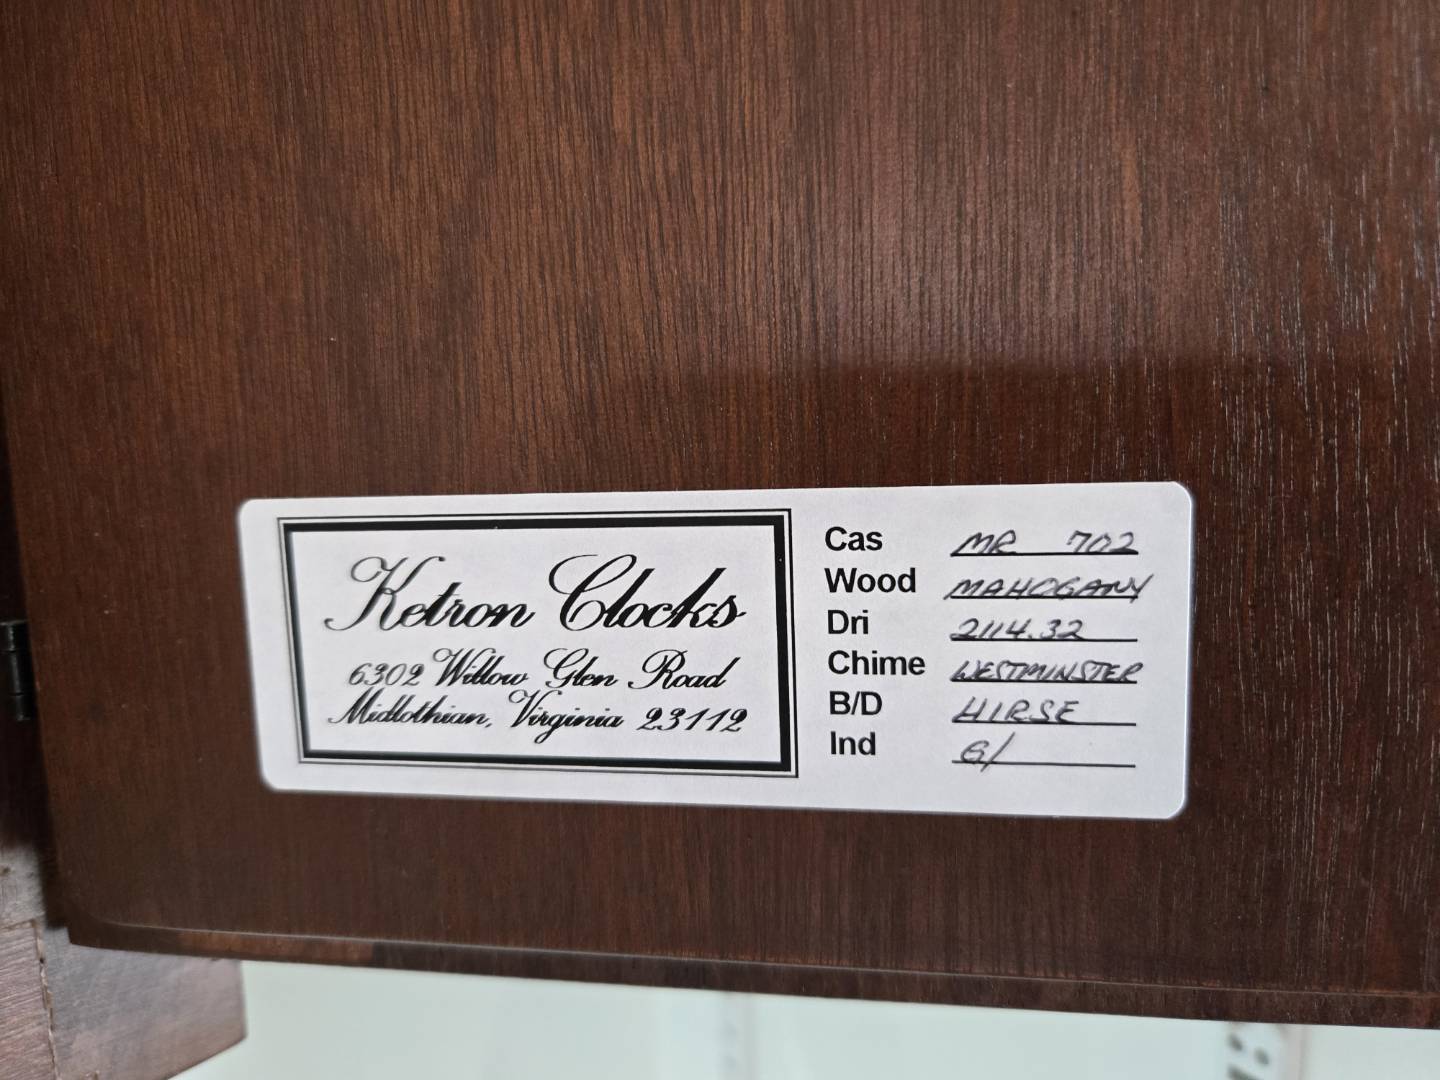 Ketron Clocks
6302 Willow Glen Road
Midlothian, Virginia 23112
Cas MR 702
Wood MAHOGANY
Dri 2114.32
Chime WESTMINSTER
B/D HIRSE
Ind G/